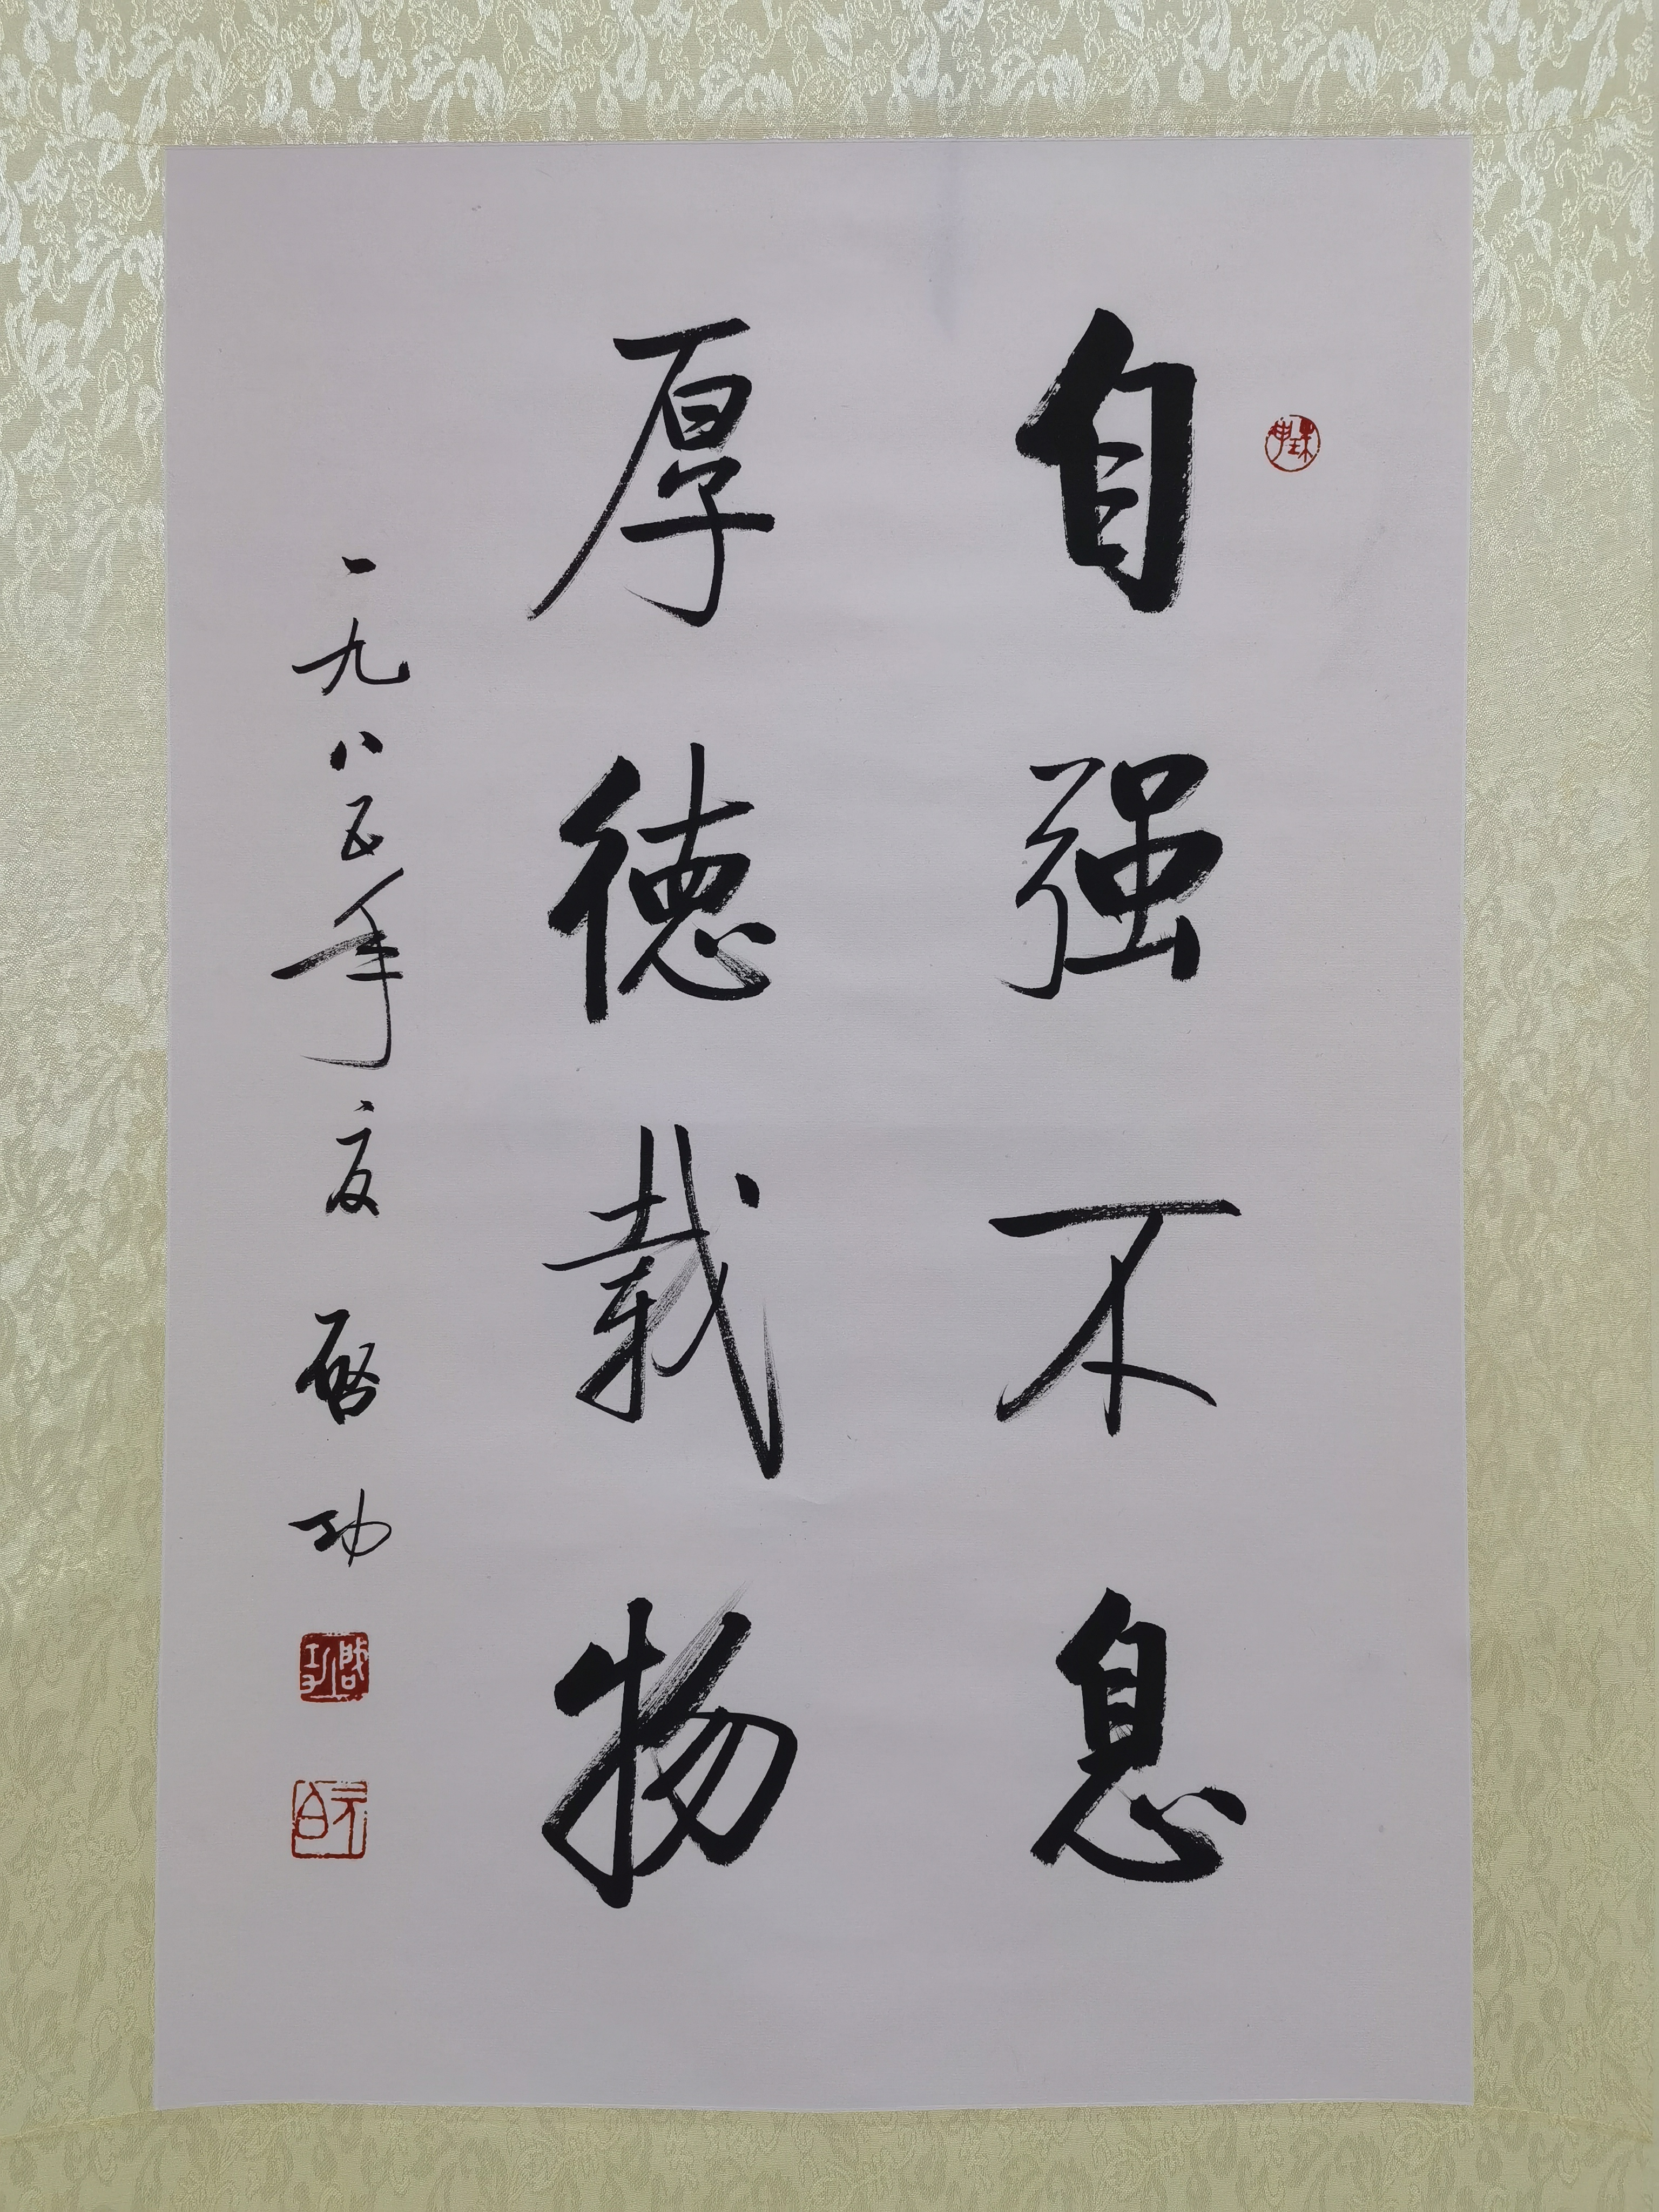 自强不息
厚德载物
一九八五年夏 启功
启功
元白